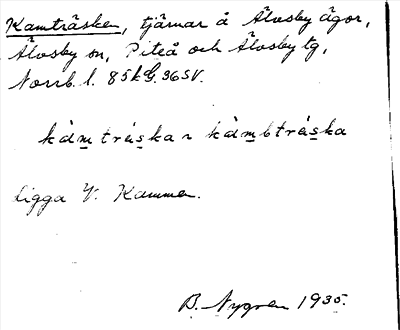 Kamträsken, tjärnar å Älvsby ägor,
Älvsby sn, Piteå och Älvsby tg,
Norrb. l. 85kG. 365V.
kàm̲trás̲ka ~ kàm̲btrás̲ka
ligga V. Kammen.
B. Nygren 1935.